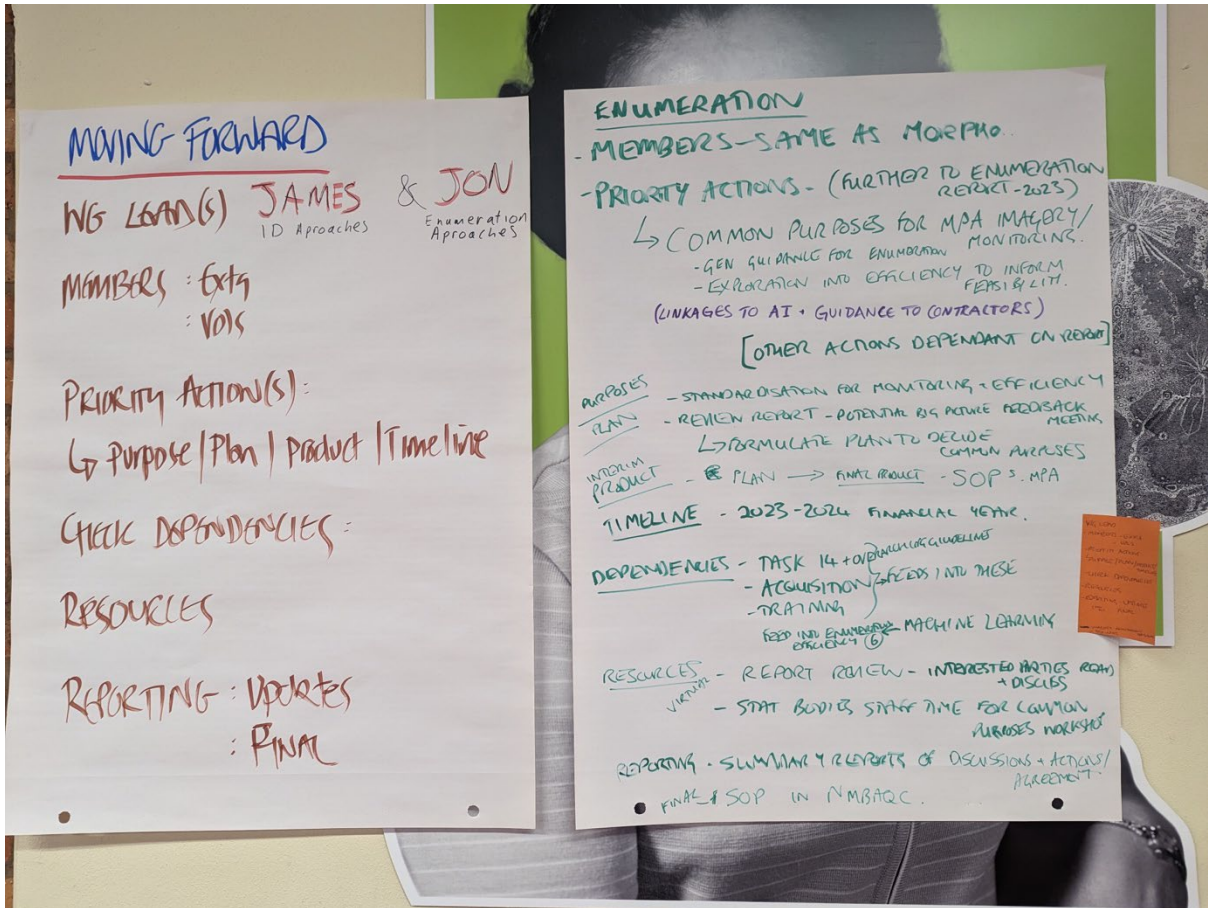 MOVING FORWARD
WG LEAD(S) JAMES & JON
ID Aproaches
Enumeration
Aproaches
MEMBERS : Extg
: VOLS
PRIORITY ACTION(S) :
↳ Purpose | Plan | Product | Timeline
CHECK DEPENDENCIES :
RESOURCES
REPORTING : Updates
: FINAL
ENUMERATION
- MEMBERS - SAME AS MORPHO.
- PRIORITY ACTIONS - (FURTHER TO ENUMERATION
REPORT - 2023)
↳ COMMON PURPOSES FOR MPA IMAGERY/
MONITORING.
- GEN GUIDANCE FOR ENUMERATION
- EXPLORATION INTO EFFICIENCY TO INFORM
(LINKAGES TO AI + GUIDANCE TO CONTRACTORS)
[OTHER ACTIONS DEPENDANT ON REPORT]
PURPOSES - STANDARDISATION FOR MONITORING + EFFICIENCY
PLAN - REVIEW REPORT - POTENTIAL BIG PICTURE FEEDBACK
MEETING
↳ FORMULATE PLAN TO DECIDE
COMMON PURPOSES
INTERIM
PRODUCT - PLAN → FINAL PRODUCT - SOPs. MPA
TIMELINE - 2023-2024 FINANCIAL YEAR.
DEPENDENCIES - TASK 14 + OVERARCHING GUIDELINES
- ACQUISITION } FEEDS INTO THESE
- TRAINING
FEED INTO ENUMERATION ← MACHINE LEARNING
EFFICIENCY ⑥
RESOURCES - REPORT REVIEW - INTERESTED PARTIES READ
VIRTUAL + DISCUSS
- STAT BODIES STAFF TIME FOR COMMON
PURPOSES WORKSHOP
REPORTING - SUMMARY REPORTS OF DISCUSSIONS + ACTIONS/
AGREEMENT.
FINAL SOP IN NMBAQC.
WG LEAD